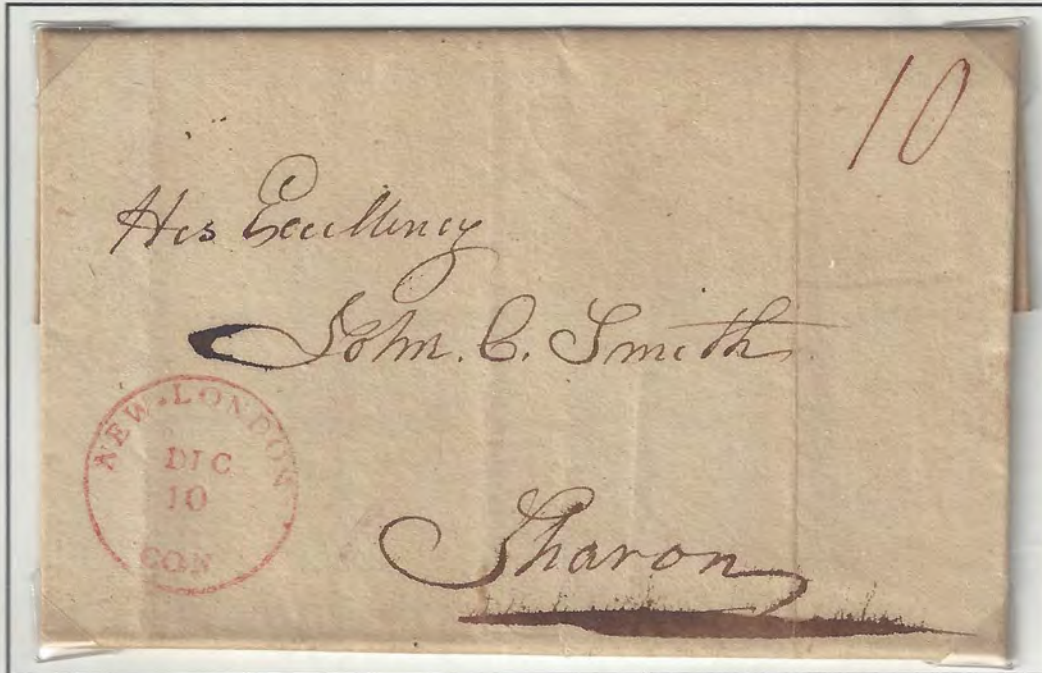 10
His Excellency
John. C. Smith
NEW·LONDON
DEC
10
CON
Sharon